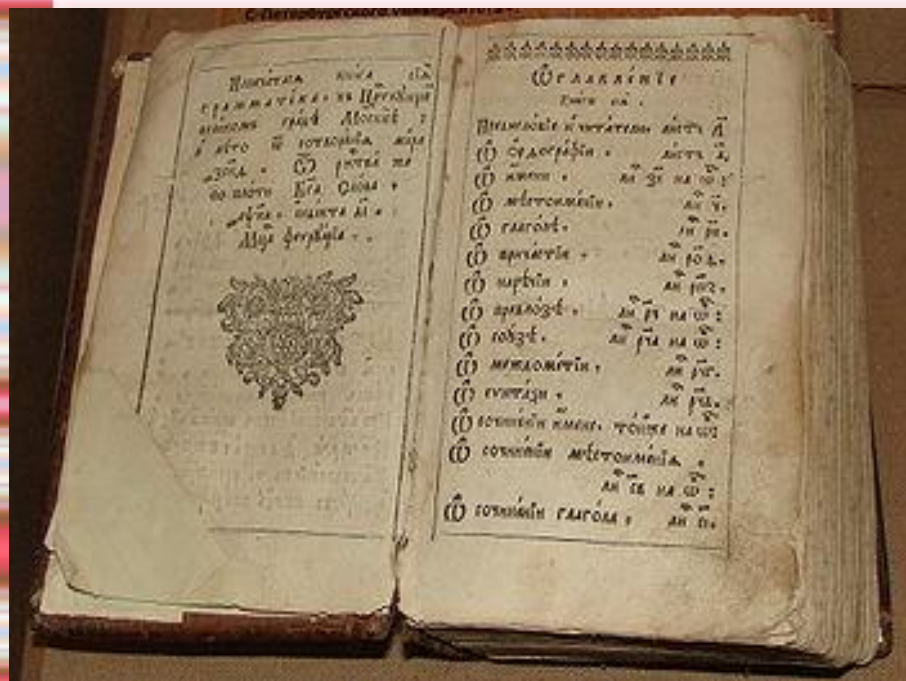 С-Петербургского университета.
Напечатана книга сїѧ̀
грамматїка, въ Цр҃ствꙋ́ющем
вели́комъ гра́дѣ Москвѣ̀ :
в лѣ́то ѿ сотворе́нїѧ мі́ра
Ѿ рж҃тва́ же
по пло́ти Бг҃а Сло́ва ,
індікта а҃і .
Мц҃а феврꙋа́рїа . .
Ѡ҆главле́нїе
Кни́ги сеѧ̀ .
Предисло́вїе к̾ чита́телю. ли́стъ а҃
Ѽ ѻ҆рдогра́фїи . ли́стъ
Ѽ и҆́мени . ли н҃з на ѿ :
Ѽ мѣстоиме́нїи . ли ч҃.
Ѽ глаго́лѣ . ли
Ѽ прича́стїи . ли
Ѽ наре́чїи . ли
Ѽ предло́зѣ . ли р҃ч на ѿ :
Ѽ сою́зѣ . ли рч҃а на ѿ :
Ѽ междоме́тїи . ли
Ѽ сѵнта́ѯи . ли
Ѽ сочине́нїи и҆́мене, то́йже на ѿ
Ѽ сочине́нїи мѣстоиме́нїѧ .
ли на ѿ :
Ѽ сочине́нїи глаго́ла , ли